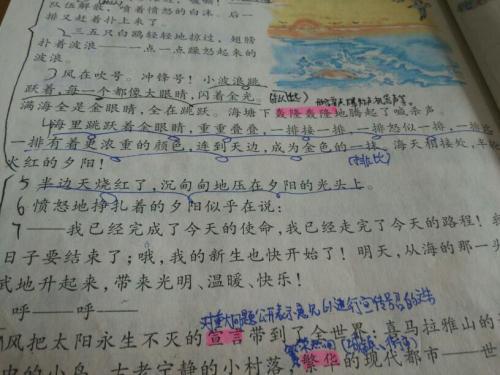 队伍解散,喷着愤怒的白沫。后一
排又赶着扑上来了。
三五只白鸥轻轻地掠过,翅膀
扑着波浪——一点一点躁怒起来的
波浪。
3风在吹号。冲锋号!小波浪跳
跃着,每一个都像大眼睛,闪着金光。
满海全是金眼睛,全在跳跃。海塘下轰隆轰隆地腾起了喊杀声。
4海里跳跃着金眼睛,重重叠叠,一排接一排,一排怒似一排,一排
一排有着更浓重的颜色,连到天边,成为金色的一抹。海天相接处,
火红的夕阳!
(排比)
5半边天烧红了,沉甸甸地压在夕阳的光头上。
6愤怒地挣扎着的夕阳似乎在说:
7——我已经完成了今天的使命,我已经走完了今天的路程!我
日子要结束了;哦,我的新生也快开始了!明天,从海的那一头
武地升起来,带来光明、温暖、快乐!
呼——呼——
对重大问题公开表示意见以进行宣传号召的文告
风把太阳永生不灭的宣言带到了全世界:喜马拉雅山的
的小岛,古老宁静的小村落,繁华的现代都市——世